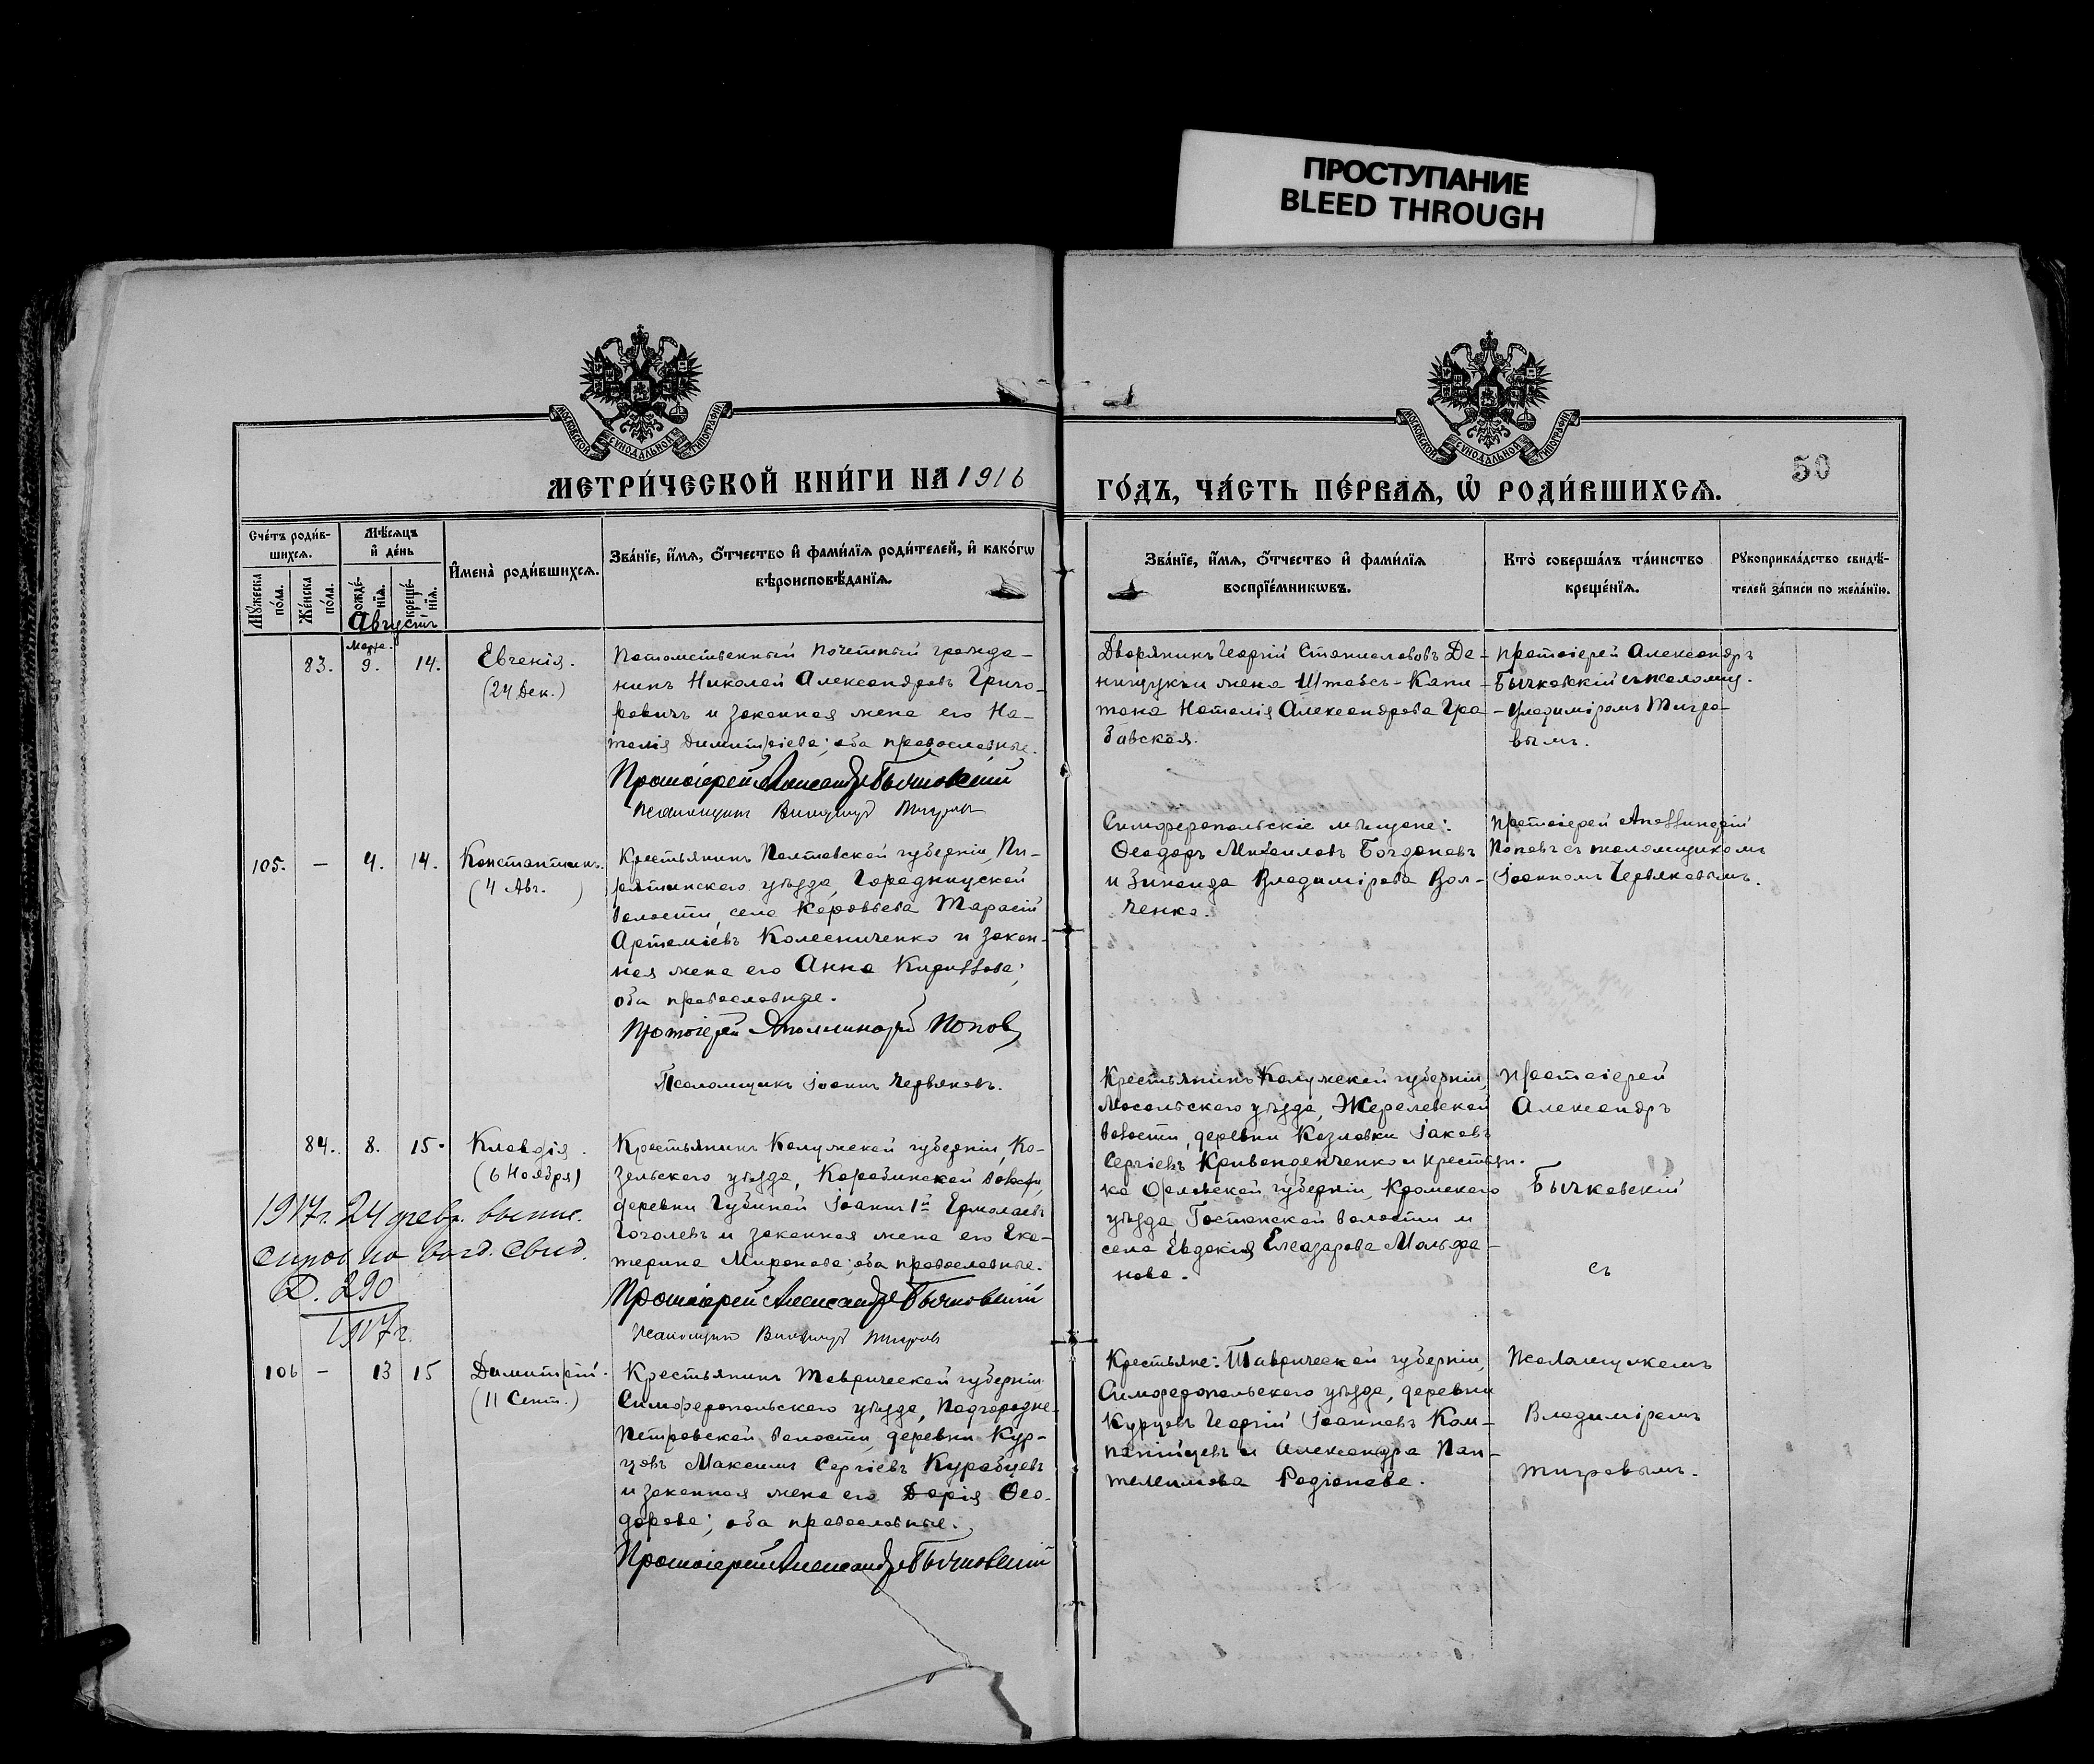 ПРОСТУПАНИЕ
BLEED THROUGH
МОСКОВСКОЙ СУНОДАЛЬНОЙ ТИПОГРАФІИ
МОСКОВСКОЙ СУНОДАЛЬНОЙ ТИПОГРАФІИ
МЕТРИ́ЧЕСКОЙ КНИ́ГИ НА 1916
ГО́ДЪ, ЧА́СТЬ ПЕ́РВАѦ, Ѡ҆ РОДИ́ВШИХСѦ.
50
Сче́тъ роди́в-
шихсѧ.
Мꙋ́жеска по́ла.
Же́нска по́ла.
Мѣ́сѧцъ
и҆ де́нь
рожде́-нїѧ.
креще́-нїѧ.
Августъ
И҆мена̀ роди́вшихсѧ.
Зва́нїе, и҆́мѧ, ѻ҆́тчество и҆ фами́лїѧ роди́телей, и҆ како́гѡ
вѣроисповѣ́данїѧ.
Зва́нїе, и҆́мѧ, ѻ҆́тчество и҆ фами́лїѧ
воспрїе́мникѡвъ.
Кто̀ соверша́лъ та́инство
креще́нїѧ.
Рꙋкоприкла́дство свидѣ́-
телей за́писи по жела́нїю.
83.
Марта.
9.
14.
Евгенія.
(24 Дек.)
Потомственный почетный гражда-
нинъ Николай Александровъ Григо-
ровичъ и законная жена его На-
талія Димитріева; оба православные.
Протоіерей Александръ Бычковскій
Псаломщикъ Владиміръ Тигровъ
Дворянинъ Георгій Станиславовъ Да-
нищукъ и жена Штабсъ-Капи-
тана Наталія Александрова Гра
бавская.
Протоіерей Александръ
Бычковскій съ псаломщ.
Владиміромъ Тигро-
вымъ.
105.
–
4.
14.
Константинъ.
(4 Авг. )
Крестьянинъ Полтавской губерніи, Пи-
рятинскаго уѣзда, Городищской
волости, села Тарасій
Артеміевъ Колесниченко и закон-
ная жена его Анна Кириллова;
оба православные.
Протоіерей Аполлинарій Попов
Псаломщикъ Іоаннъ Червяковъ.
Симферопольскіе мѣщане:
Ѳеодоръ Михаиловъ Богдановъ
и Зинаида Владимірова Вол-
ченко.
Протоіерей Аполлинарій
Поповъ съ псаломщикомъ
Іоанномъ Червяковымъ.
84.
8.
15.
Клавдія.
(6 Ноября)
Крестьянинъ Калужской губерніи, Ко-
зельскаго уѣзда, волости,
деревни Губиной Іоаннъ 1й Ермолаевъ
Гоголевъ и законная жена его Ека-
терина Миронова; оба православные.
Протоіерей Александръ Бычковскій
Псаломщикъ Владиміръ Тигровъ
1917г. 24 февр.
свид.
290
1917г.
Крестьянинъ Калужской губерніи,
Мосальскаго уѣзда, Жерелевской
волости, деревни Козловки Іаковъ
Сергіевъ и крестьян-
ка Орловской губерніи, Кромскаго
уѣзда, Гостомской волости и
села Евдокія Елеазарова Мальфа-
нова.
Протоіерей
Александръ
Бычковскій
съ
106
–
13
15
Димитрій.
(11 Сент.)
Крестьянинъ Таврической губерніи
Симферопольскаго уѣзда, Подгородне-
Петровской волости, деревни Кур-
цовъ Максимъ Сергіевъ Курабцевъ
и законная жена его Дарія Ѳео-
дорова; оба православные.
Протоіерей Александръ Бычковскій
Крестьяне: Таврической губерніи,
Симферопольскаго уѣзда, деревни
Курцовъ Георгій Іоанновъ Ком-
панійцевъ и Александра Пан-
телеимова Родіонова.
Псаломщикомъ
Владиміромъ
Тигровымъ.